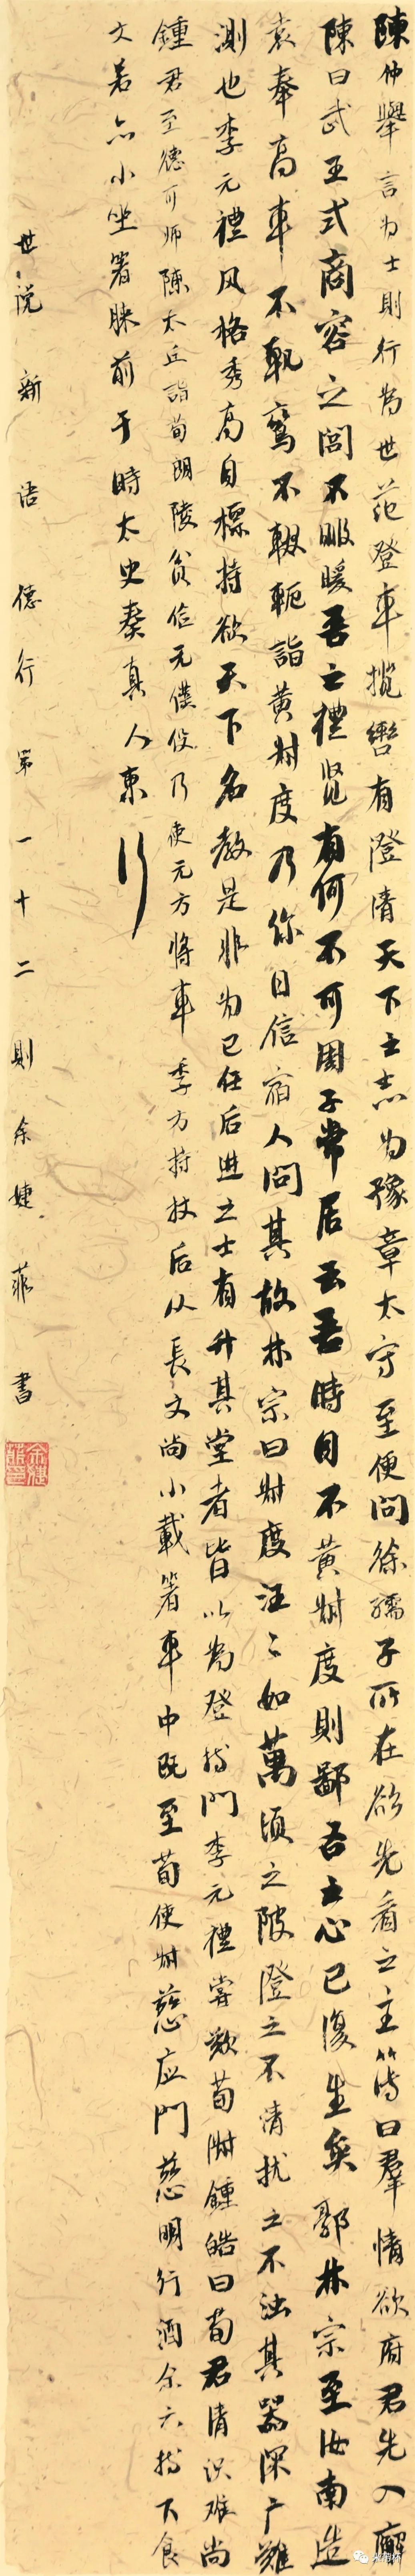 陳仲舉言为士則行为世范登车揽轡有澄清天下之志为豫章太守至便問徐孺子所在欲先看之主簿曰羣情欲府君先入廨
陳曰武王式商容之閭不暇暖吾之禮贤有何不可周子常居云吾時月不黄叔度則鄙吝之心已復生矣郭林宗至汝南造
袁奉高车不軌鸾不輟軛詣黄叔度乃弥日信宿人問其故林宗曰叔度汪〻如萬顷之陂澄之不清扰之不浊其器深广難
測也李元禮风格秀高自標持欲天下名教是非为己任后進之士有升其堂者皆以为登龙门李元禮尝歎荀淑鍾皓曰荀君清识难尚
鍾君至德可师陳太丘詣荀朗陵貧俭无僕役乃使元方将车季方持杖后从長文尚小載著车中既至荀使叔慈应门慈明行酒余六龙下食
文若亦小坐著膝前于時太史奏真人東行
世説新语德行第一十二則余婕菲書